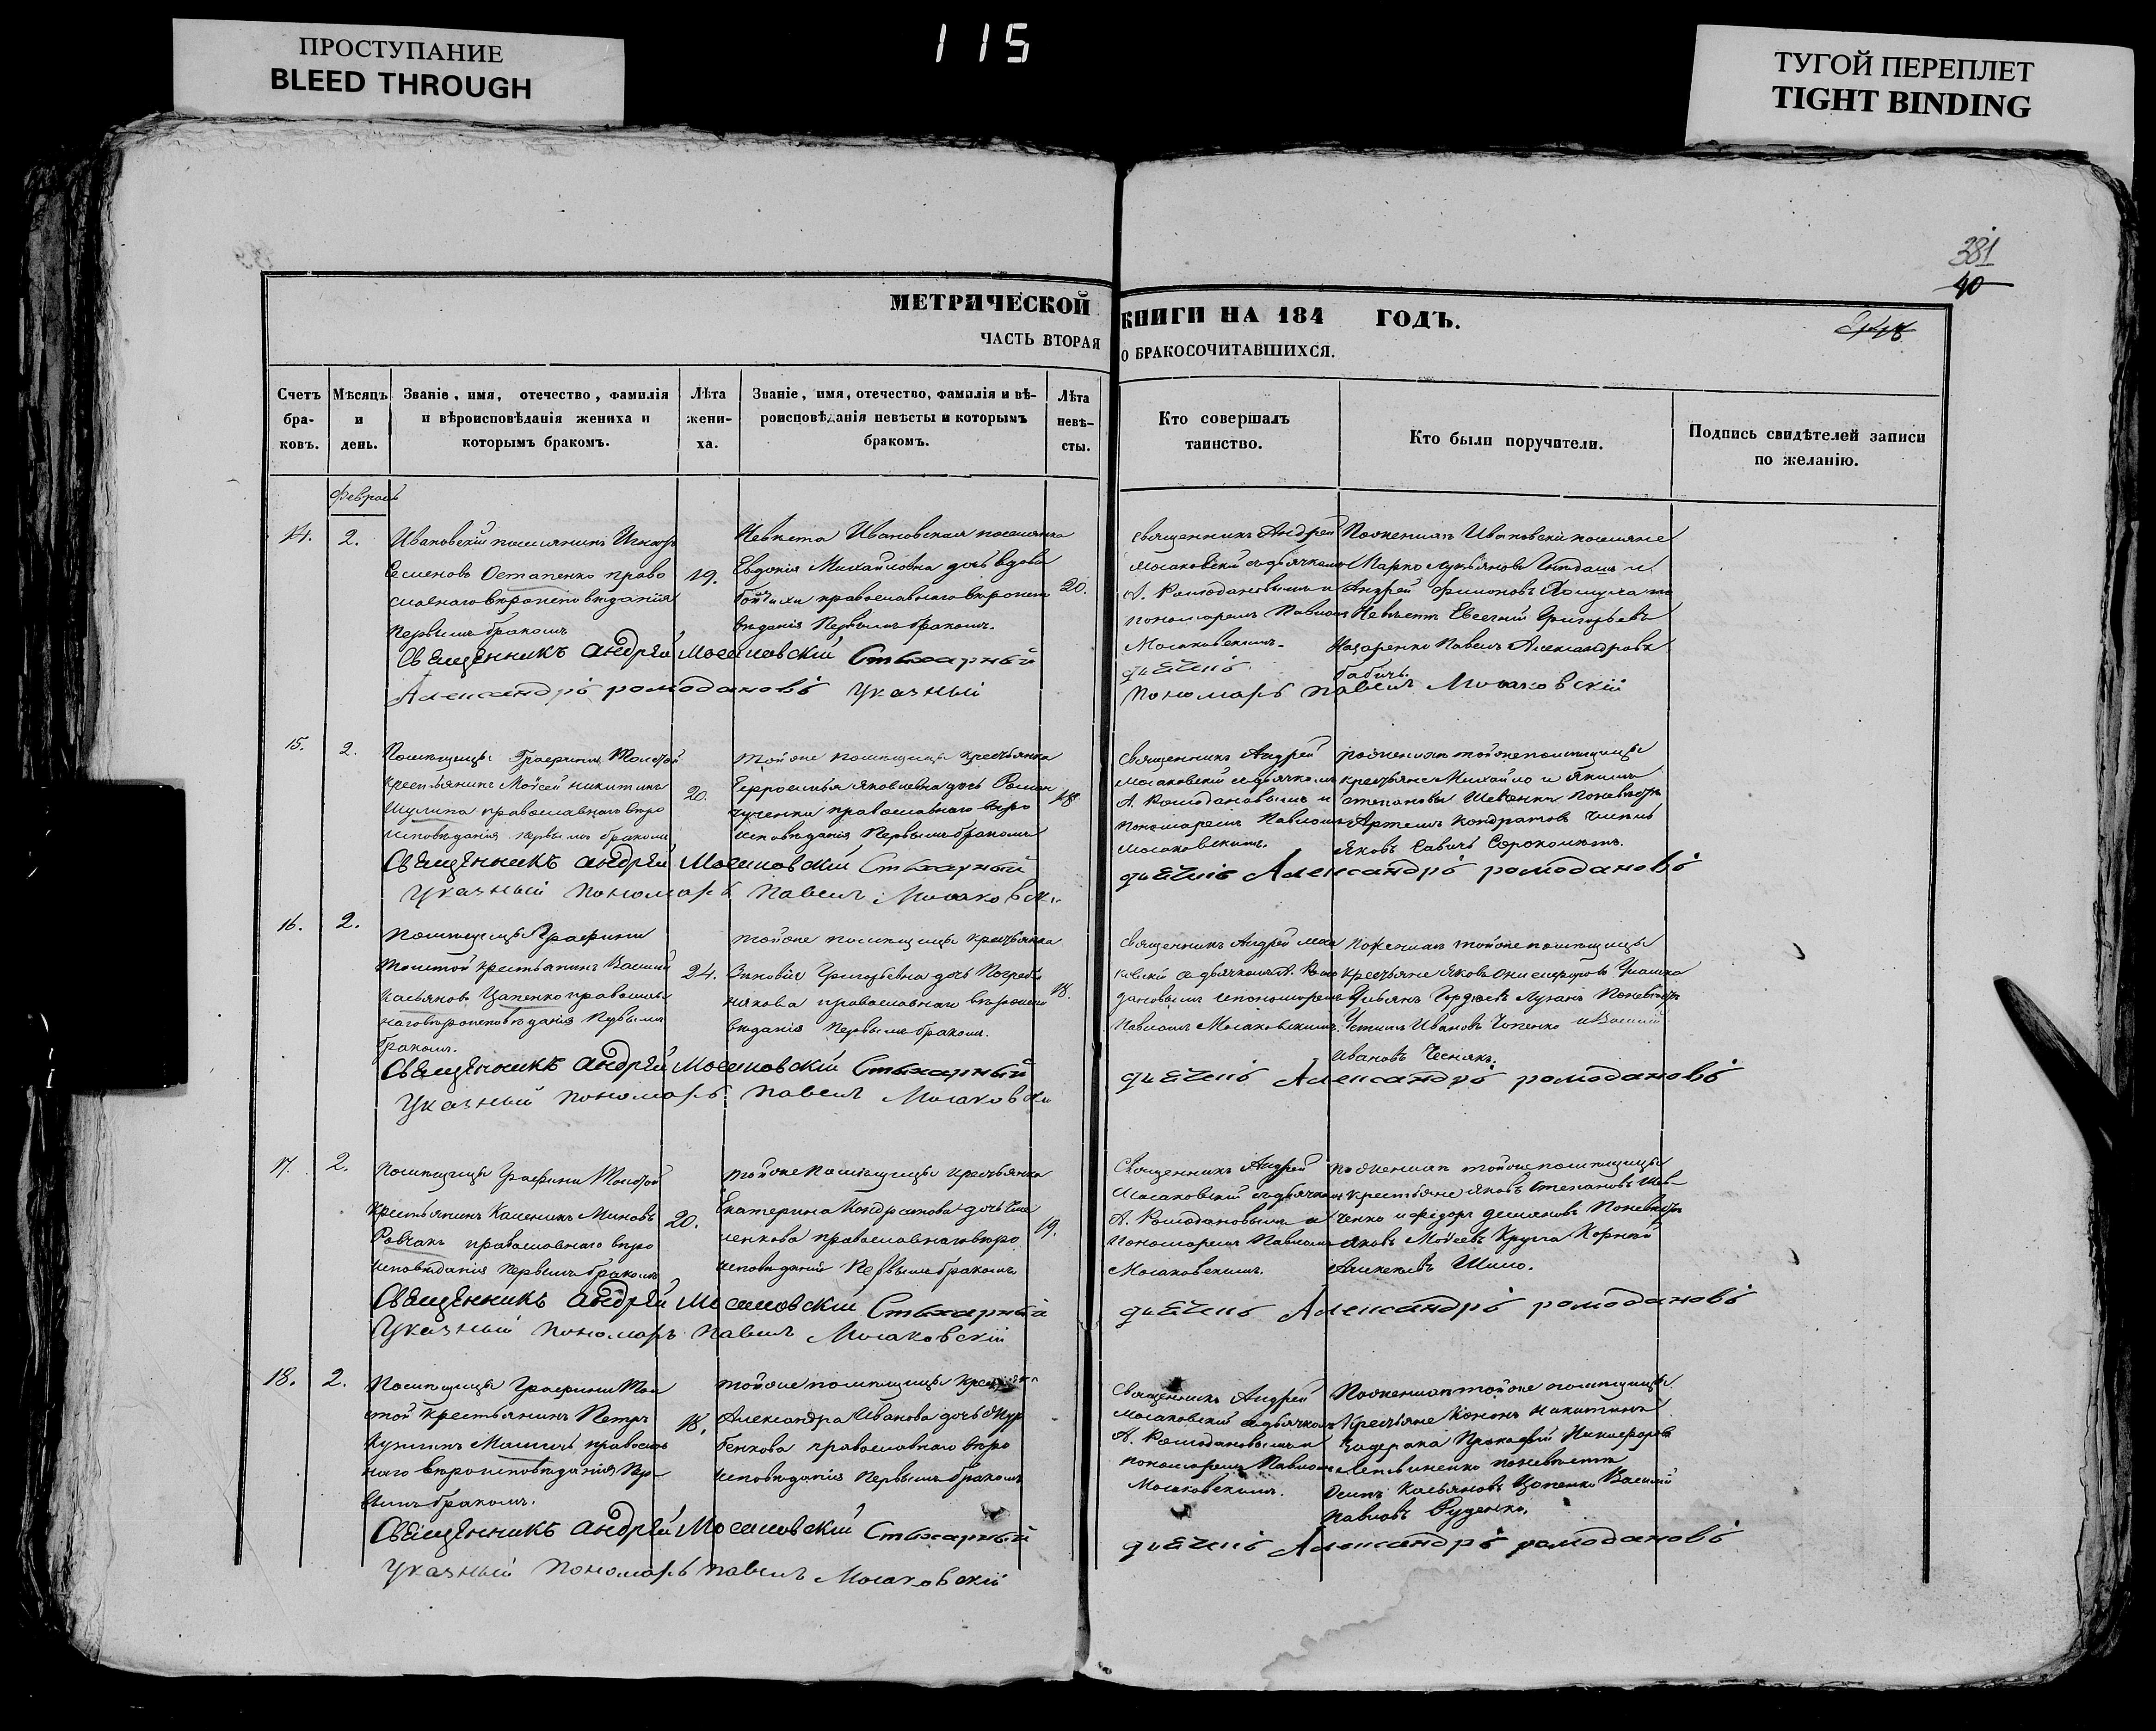 ПРОСТУПАНИЕ
BLEED THROUGH
115
ТУГОЙ ПЕРЕПЛЕТ
TIGHT BINDING
381
40
МЕТРИЧЕСКОЙ КНИГИ НА 184 ГОДЪ.
ЧАСТЬ ВТОРАЯ О БРАКОСОЧИТАВШИХСЯ.
Счетъ бра-ковъ.
Мѣсяцъ и день.
Званіе, имя, отечество, фамилія
и вѣроисповѣданія жениха и
которымъ бракомъ.
Лѣта жени-ха.
Званіе, имя, отечество, фамилія и вѣ-
роисповѣданія невѣсты и которымъ
бракомъ.
Лѣта невѣ-сты.
Кто совершалъ
таинство.
Кто были поручители.
Подпись свидѣтелей записи
по желанію.
Февраль
14.
2.
Ивановскій поселянинъ
Семеновъ Остапенко право
славнаго вѣроисповѣданія
первымъ бракомъ
19.
Невѣста Ивановская поселянка
Евдокія Михайловна дочь вдова
православнаго вѣроиспо
вѣданія первымъ бракомъ.
20.
Священникъ Андрей
Мосаковскій съ дьячкомъ
А. Ромодановымъ и
пономаремъ Павломъ
Мосаковскимъ.
По женихѣ Ивановскіе поселяне
Марко Лукьяновъ и
Андрей Филоновъ по
Невѣстѣ Евсегній Григорьевъ
Назаренко Павелъ Александровъ
Бабичъ.
Священникъ Андрей Мосаковскій Стихарный дьячекъ
Александръ Ромодановъ Указный пономарь Павелъ Мосаковскій
15.
2.
Помѣщицы Графини Толстой
крестьянинъ Мойсей Никитинъ
Шулипа православнаго вѣро
исповѣданія первымъ бракомъ
20.
Той же помѣщицы крестьянка
Яковлевна дочь Роман
ченкова православнаго вѣро
исповѣданія первымъ бракомъ
18.
Священникъ Андрей
Мосаковскій съ дьячкомъ
А. Ромодановымъ и
пономаремъ Павломъ
Мосаковскимъ.
По женихѣ той же помѣщицы
крестьяне Михайло и Якимъ
Степановы Шевченки по невѣстѣ
Артемъ Кондратовъ
Яковъ Савичъ
Священникъ Андрей Мосаковскій Стихарный дьячекъ Александръ Ромодановъ
Указный пономарь Павелъ Мосаковскій
16.
2.
Помѣщицы Графини
Толстой крестьянинъ Василій
Касьяновъ Цапенко православ
наго вѣроисповѣданія первымъ
бракомъ.
24.
Той же помѣщицы крестьянка
Зиновія Григорьевна дочь Погреб
някова православнаго вѣроиспо
вѣданія первымъ бракомъ.
18.
Священникъ Андрей Моса
ковскій съ дьячкомъ А. Ромо
дановымъ и пономаремъ
Павломъ Мосаковскимъ.
По женихѣ той же помѣщицы
крестьяне Яковъ Онисифоровъ
Гордіевъ по невѣстѣ
Устимъ Ивановъ и Василій
Ивановъ Чеснякъ.
Священникъ Андрей Мосаковскій Стихарный дьячекъ Александръ Ромодановъ
Указный пономарь Павелъ Мосаковскій
17.
2.
Помѣщицы Графини Толстой
крестьянинъ Каленикъ Миновъ
Ровчакъ православнаго вѣро
исповѣданія первымъ бракомъ
20.
Той же помѣщицы крестьянка
Екатерина Кондратова дочь
ченкова православнаго вѣро
исповѣданія первымъ бракомъ
19.
Священникъ Андрей
Мосаковскій съ дьячкомъ
А. Ромодановымъ и
пономаремъ Павломъ
Мосаковскимъ.
По женихѣ той же помѣщицы
крестьяне Яковъ Степановъ Шев
ченко и Федоръ Демяновъ по невѣстѣ
Яковъ Мойсеевъ Кругла Корней
Алексѣевъ Шило.
Священникъ Андрей Мосаковскій Стихарный дьячекъ Александръ Ромодановъ
Указный пономарь Павелъ Мосаковскій
18.
2.
Помѣщицы Графини Тол
стой крестьянинъ Петръ
Кузминъ православ
наго вѣроисповѣданія пер
вымъ бракомъ.
18.
Той же помѣщицы крестьянка
Александра Иванова дочь
бенкова православнаго вѣро
исповѣданія первымъ бракомъ
Священникъ Андрей
Мосаковскій съ дьячкомъ
А. Ромодановымъ и
пономаремъ Павломъ
Мосаковскимъ.
По женихѣ той же помѣщицы
крестьяне Кононъ Никитинъ
Чадерака Прокофій Никифоровъ
Литвиненко по невѣстѣ
Осипъ Касьяновъ Цапенко Василій
Павловъ Руденко.
Священникъ Андрей Мосаковскій Стихарный дьячекъ Александръ Ромодановъ
Указный пономарь Павелъ Мосаковскій